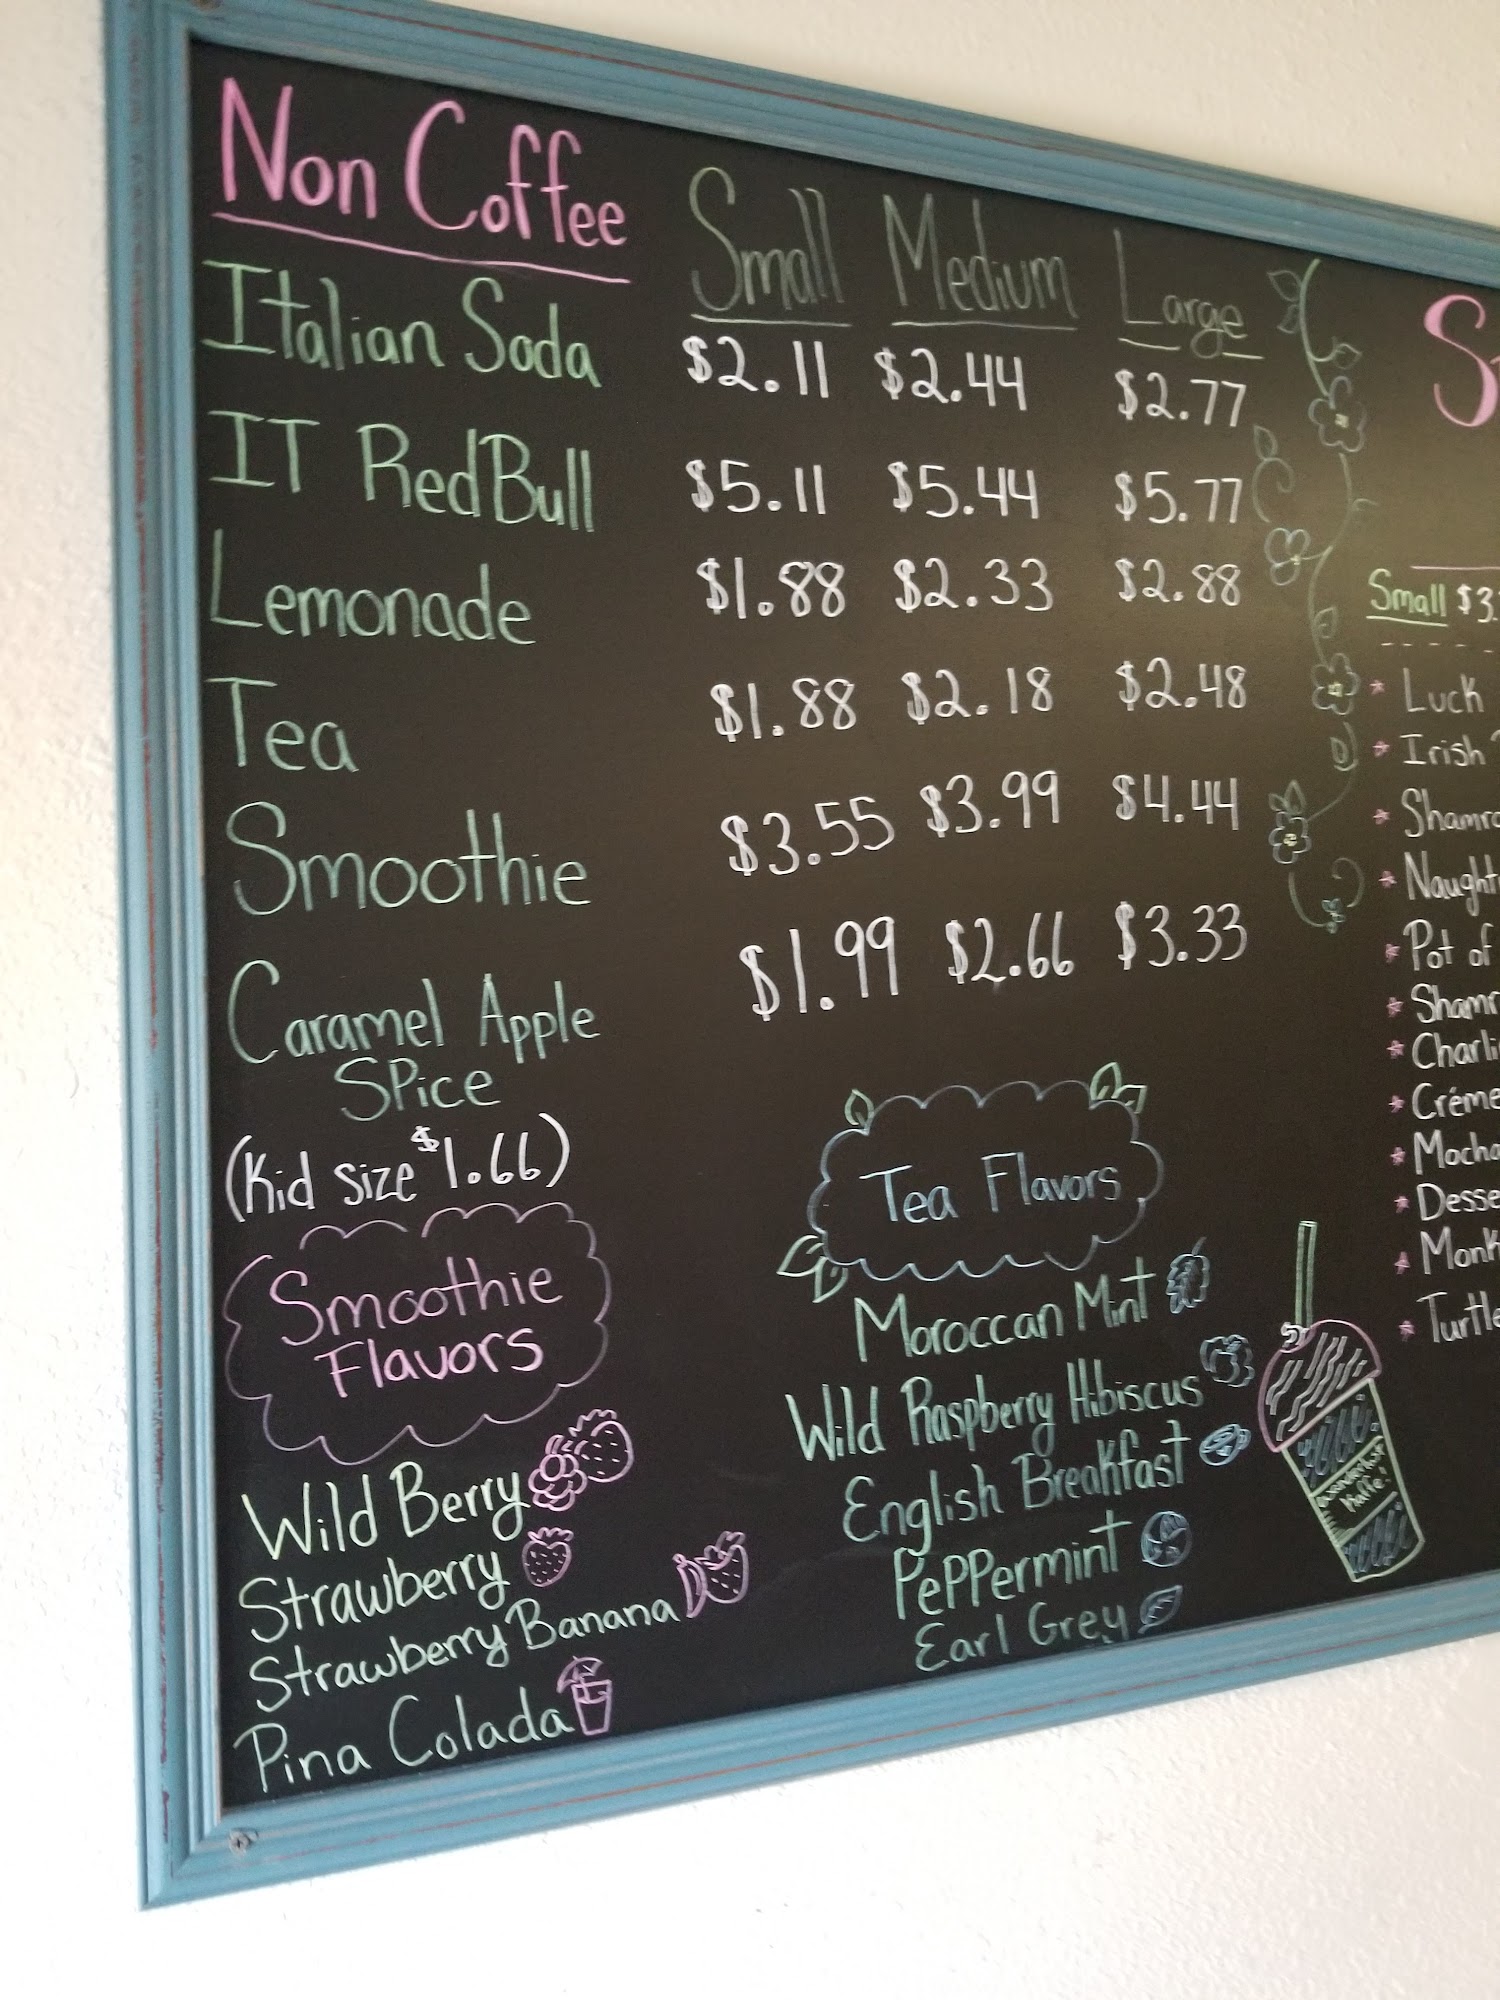 Non Coffee Small Medium Large
Italian Soda $2.11 $2.44 $2.77
IT RedBull $5.11 $5.44 $5.77
Lemonade $1.88 $2.33 $2.88
Tea $1.88 $2.18 $2.48
Smoothie $3.55 $3.99 $4.44
Caramel Apple $1.99 $2.66 $3.33
SPice
(Kid size $1.66)
Smoothie
Flavors
Wild Berry
Strawberry
Strawberry Banana
Pina Colada
Tea Flavors
Moroccan Mint
Wild Raspberry Hibiscus
English Breakfast
PePPermint
Earl Grey
Small $3.
* Luck
* Irish
* Shamro
* Naught
* Pot of
* Shamr
* Charli
* Créme
* Mocha
* Desse
* Monk
* Turtle